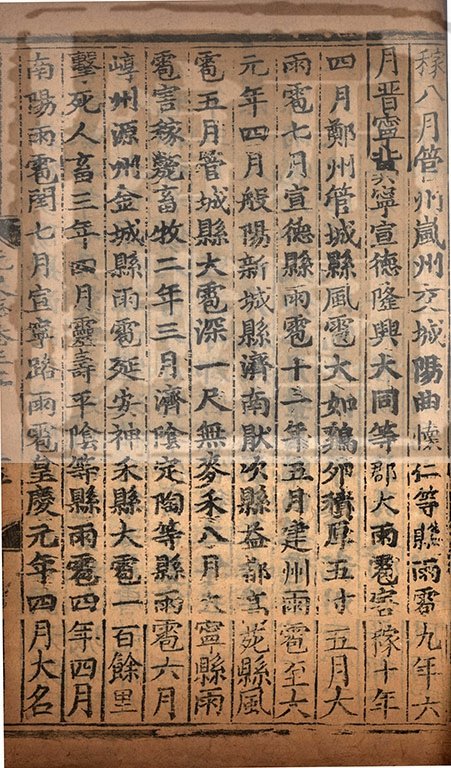 稼八月管州嵐州交城陽曲懷仁等縣雨雹九年六
月晉寧冀寧宣德隆興大同等郡大雨雹害稼十年
四月鄭州管城縣風雹大如鷄卵積厚五寸五月大
雨雹七月宣德縣雨雹十一年五月建州雨雹至六
元年四月般陽新城縣濟南厭次縣益都高苑縣風
雹五月管城縣大雹深一尺無麥禾八月大寧縣雨
雹害稼斃畜牧二年三月濟陰定陶等縣雨雹六月
崞州源州金城縣雨雹延安神禾縣大雹一百餘里
擊死人畜三年四月靈壽平陰等縣雨雹四年四月
南陽雨雹閏七月宣寧路雨雹皇慶元年四月大名